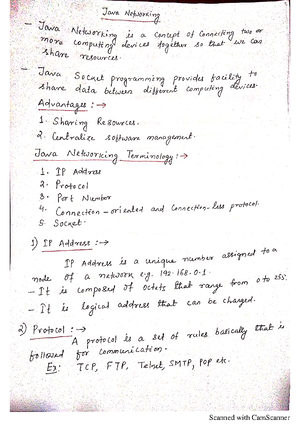 Java Networking
- Java Networking is a concept of connecting two or
more computing devices together so that we can
share resources.
- Java Socket programming provides facility to
share data between different computing devices.
Advantages :→
1. Sharing Resources.
2. Centralize software management.
Java Networking Terminology :→
1. IP Address
2. Protocol
3. Port Number
4. Connection-oriented and Connection-less protocol.
5. Socket.
1) IP Address :→
IP Address is a unique number assigned to a
node of a network e.g. 192.168.0.1.
- It is composed of octets that range from 0 to 255.
- It is logical address that can be changed.
2) Protocol :→
A protocol is a set of rules basically that is
followed for communication.
Ex: TCP, FTP, Telnet, SMTP, POP etc.
Scanned with CamScanner